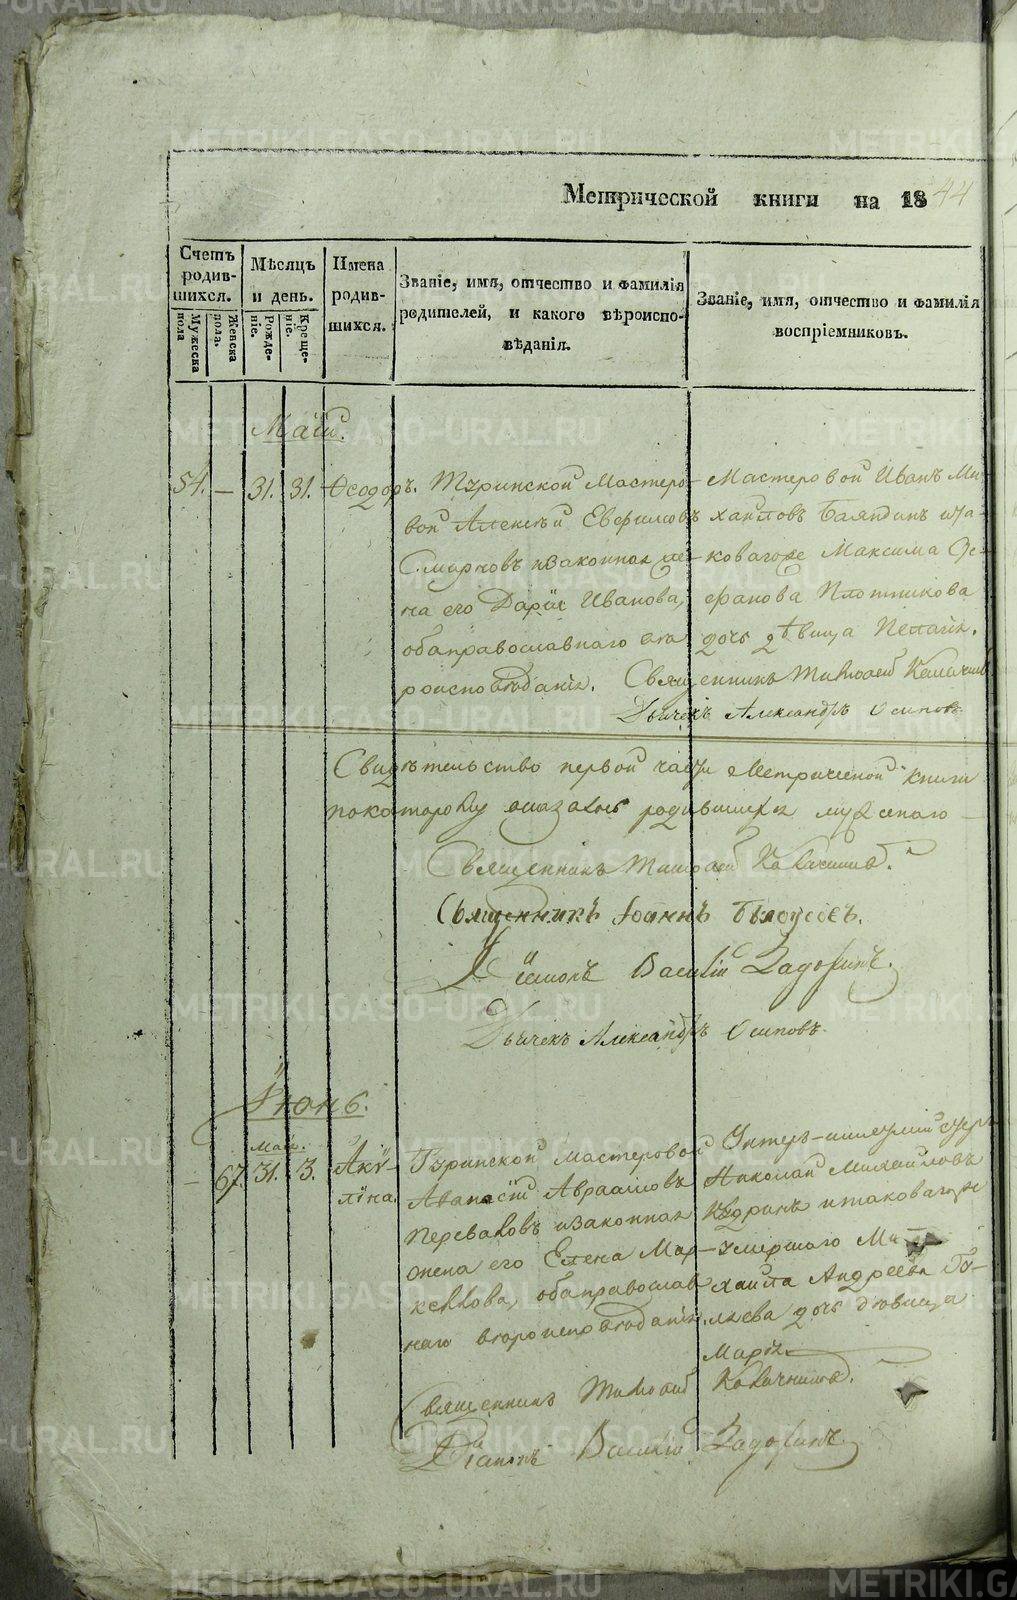 Метрической книги на 1844
Счетъ родив-шихся.
Мѣсяцъ и день.
Имена родив-шихся.
Званіе, имя, отчество и фамилія родителей, и какого вѣроиспо-вѣданія.
Званіе, имя, отчество и фамилія воспріемниковъ.
Мужеска пола
Женска пола.
Рожде-ніе.
Креще-ніе.
Маій.
54. — 31. 31. Ѳеодоръ.
Туринской Мастеро-
вой Алексѣй Евфимовъ
Смирновъ изаконная же-
на его Дарія Иванова,
обаправославнаго вѣ
роисповѣданія.
Мастеровой Иванъ Ми-
хаиловъ Баяндинъ ита-
ковагоже Максима Сте-
фанова Плотникова
дочь дѣвица Пелагія.
Священникъ Тимофей
Дьячекъ Александръ Осиповъ
Свидѣтельство первой части Метрической книги
покоторому оказалось родившихся мужескаго —
Священникъ Тимофей
Священникъ Іоаннъ Бѣлоусовъ.
Діаконъ Василій Задоринъ.
Дьячекъ Александръ Осиповъ
Іюнь.
Маія.
— 67. 31. 3. Аку-
лина.
Туринской мастеровой
Аванасій Авраамовъ
Переваловъ изаконная
жена его Елена Мар-
келлова, обаправослав
наго вѣроисповѣданія.
Унтеръ-
Николай Михайловъ
Кудринъ итаковагоже
умершаго Ми
хаила Андреева
дочь дѣвица
Марія
Священникъ Тимофей
Діаконъ Василій Задоринъ
METRIKI.GASO-URAL.RU